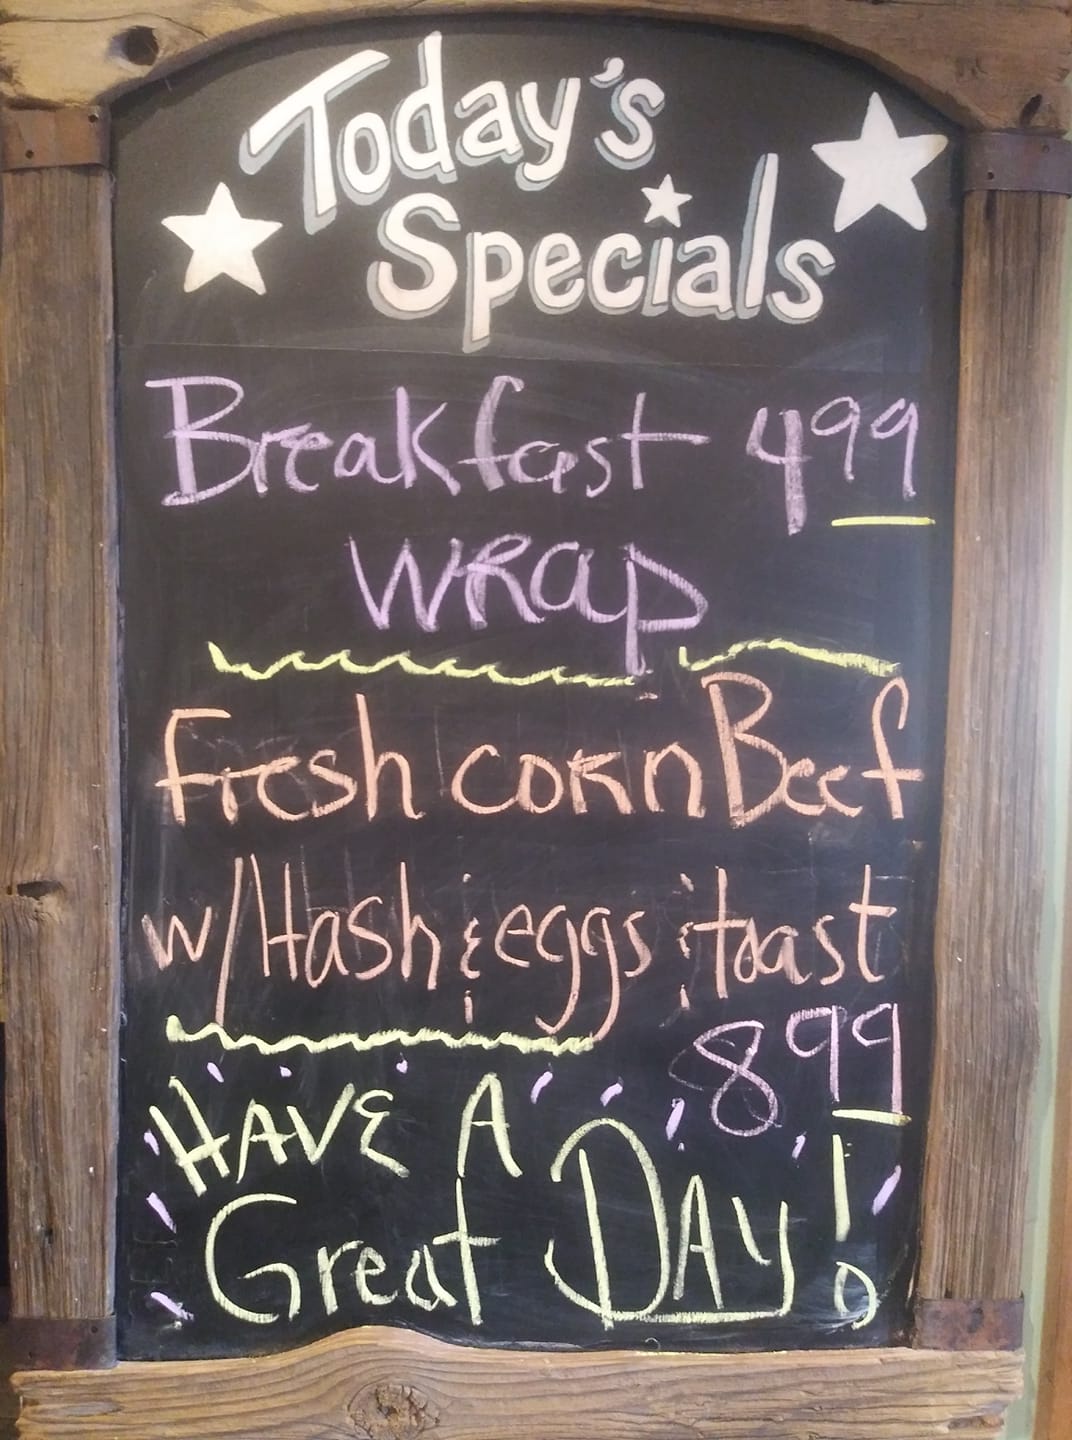 Today's
Specials
Breakfast 4 99
WRap
Fresh corn Beef
w/Hash & eggs & toast
8 99
HAVE A
Great DAY!